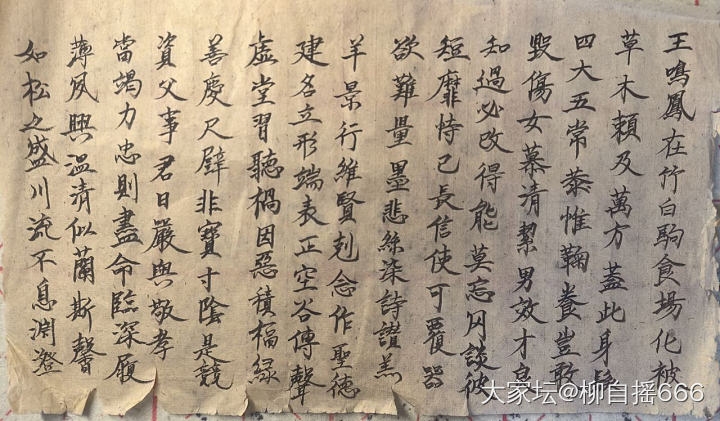 王鳴鳳在竹白駒食場化被
草木賴及萬方蓋此身髮
四大五常恭惟鞠養豈敢
毀傷女慕清潔男效才良
知過必改得能莫忘罔談彼
短靡恃己長信使可覆器
欲難量墨悲絲染詩讚羔
羊景行維賢剋念作聖德
建名立形端表正空谷傳聲
虛堂習聽禍因惡積福緣
善慶尺璧非寶寸陰是競
資父事君曰嚴與敬孝
當竭力忠則盡命臨深履
薄夙興溫清似蘭斯馨
如松之盛川流不息淵澄
大家坛@柳自摇666